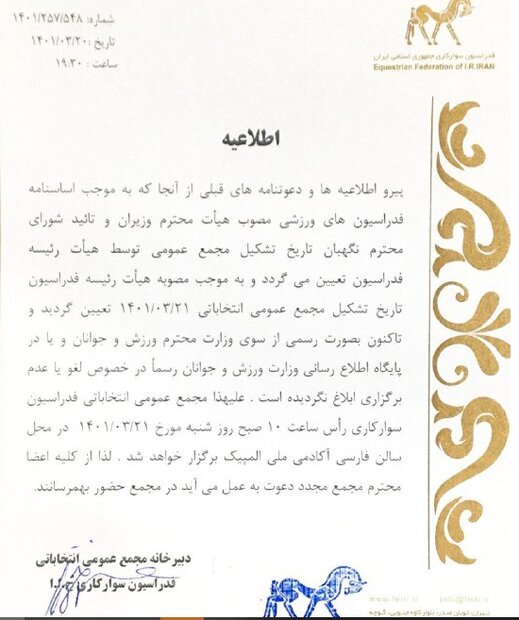 شماره: ۱۴۰۱/۲۵۷/۵۴۸
تاریخ: ۱۴۰۱/۰۳/۲۰
ساعت: ۱۹:۳۰
فدراسیون سوارکاری جمهوری اسلامی ایران
Equestrian Federation of I.R.IRAN
اطلاعیه
پیرو اطلاعیه ها و دعوتنامه های قبلی از آنجا که به موجب اساسنامه
فدراسیون های ورزشی مصوب هیأت محترم وزیران و تائید شورای
محترم نگهبان تاریخ تشکیل مجمع عمومی توسط هیأت رئیسه
فدراسیون تعیین می گردد و به موجب مصوبه هیأت رئیسه فدراسیون
تاریخ تشکیل مجمع عمومی انتخاباتی ۱۴۰۱/۰۳/۲۱ تعیین گردید و
تاکنون بصورت رسمی از سوی وزارت محترم ورزش و جوانان و یا در
پایگاه اطلاع رسانی وزارت ورزش و جوانان رسماً در خصوص لغو یا عدم
برگزاری ابلاغ نگردیده است . علیهذا مجمع عمومی انتخاباتی فدراسیون
سوارکاری رأس ساعت ۱۰ صبح روز شنبه مورخ ۱۴۰۱/۰۳/۲۱ در محل
سالن فارسی آکادمی ملی المپیک برگزار خواهد شد . لذا از کلیه اعضا
محترم مجمع مجدد دعوت به عمل می آید در مجمع حضور بهمرسانند.
دبیرخانه مجمع عمومی انتخاباتی
فدراسیون سوارکاری ج.ا.ا
www.feiri.ir info@feiri.ir